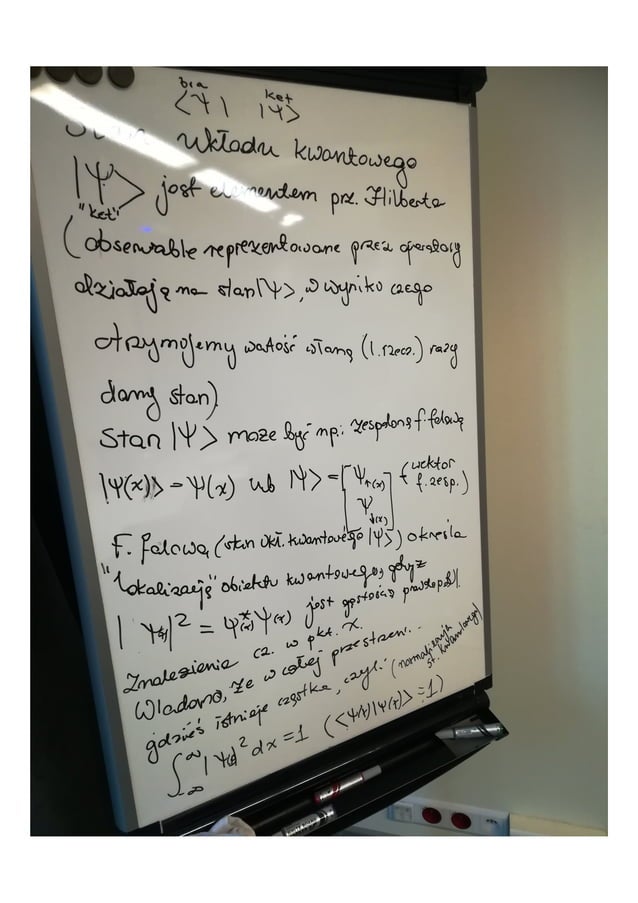 bra ket
⟨Ψ| |Ψ⟩
Stan układu kwantowego
|Ψ⟩ jest elementem prz. Hilberta
"ket"
(obserwable reprezentowane przez operatory
działają na stan |Ψ⟩, w wyniku czego
otrzymujemy wartość własną (l. rzecz.) razy
dany stan).
Stan |Ψ⟩ może być np.: zespoloną f. falową
|Ψ(x)⟩ = Ψ(x) lub |Ψ⟩ = [Ψ↑(x) Ψ↓(x)] (wektor f. zesp.)
F. falowa (stan ukł. kwantowego |Ψ⟩) określa
"lokalizację" obiektu kwantowego, gdyż
|Ψ(x)|² = Ψ*(x)Ψ(x) jest gęstością prawdopod.
Znalezienia cz. w pkt. x.
Wiadomo, że w całej przestrzeni
gdzieś istnieje cząstka, czyli (normalizacja st. kwantowego)
∫_{-∞}^{∞} |Ψ(x)|² dx = 1 (⟨Ψ(x)|Ψ(x)⟩ = 1)